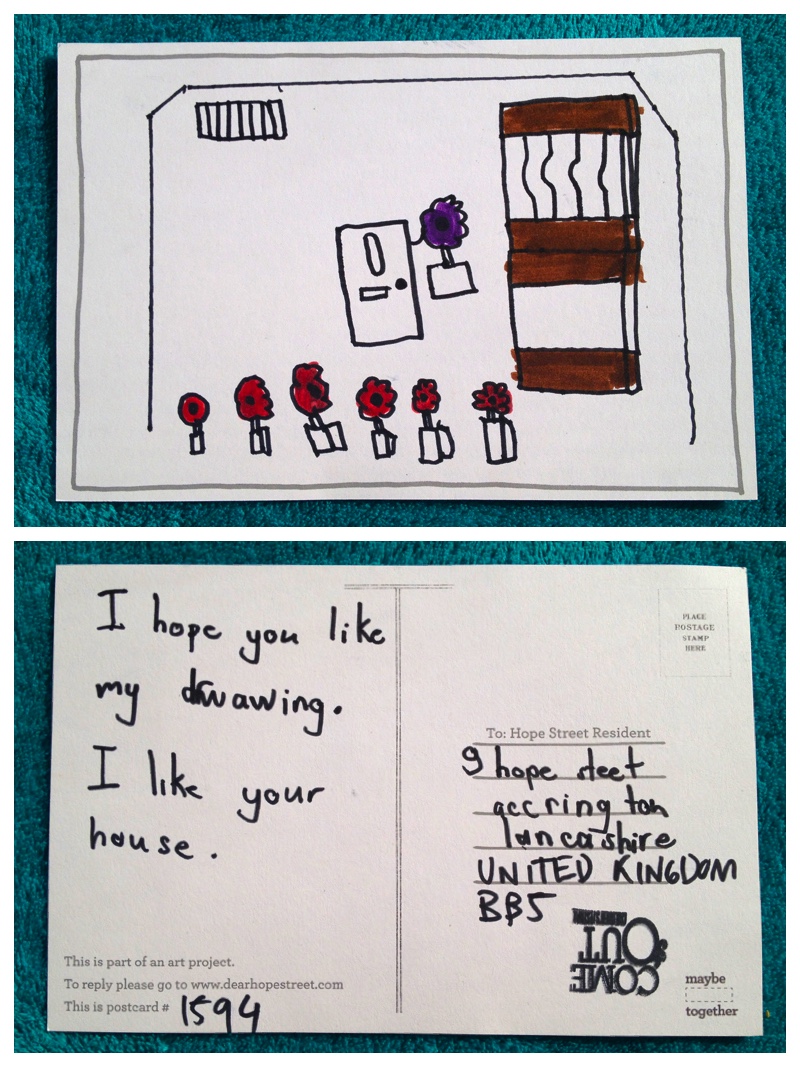 I hope you like
my drwawing.
I like your
house.
This is part of an art project.
To reply please go to www.dearhopestreet.com
This is postcard # 1594
PLACE
POSTAGE
STAMP
HERE
To: Hope Street Resident
9 hope steet
accrington
lancashire
UNITED KINGDOM
BB5
COME
OUT
maybe
together